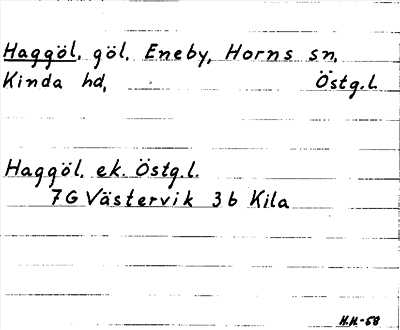 Haggöl, göl, Eneby, Horns sn,
Kinda hd, Östg.l.
Haggöl. ek. Östg.l.
7G Västervik 3b Kila
H.H.-58